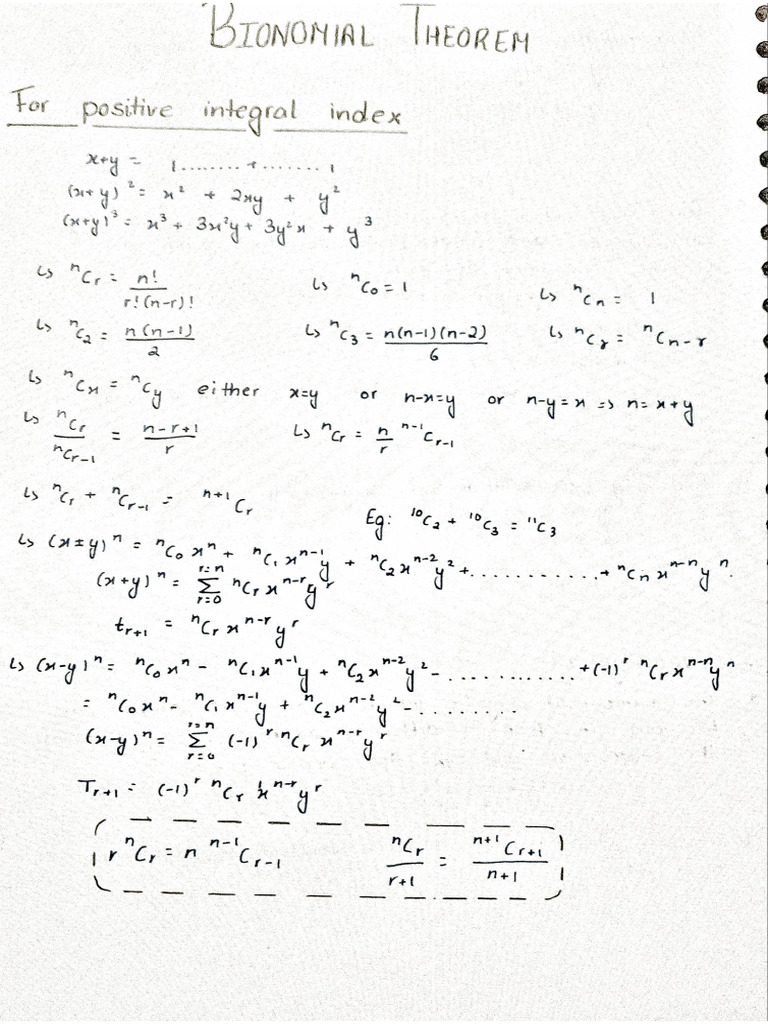 BIONOMIAL THEOREM
For positive integral index
x+y = 1........+.......1
(x+y)² = x² + 2xy + y²
(x+y)³ = x³ + 3x²y + 3y²x + y³
↳ ⁿCᵣ = n!/r!(n-r)! ↳ ⁿC₀ = 1 ↳ ⁿCₙ = 1
↳ ⁿC₂ = n(n-1)/2 ↳ ⁿC₃ = n(n-1)(n-2)/6 ↳ ⁿCᵣ = ⁿCₙ₋ᵣ
↳ ⁿCₓ = ⁿC_y either x=y or n-x=y or n-y=x => n=x+y
↳ ⁿCᵣ/ⁿCᵣ₋₁ = n-r+1/r ↳ ⁿCᵣ = n/r ⁿ⁻¹Cᵣ₋₁
↳ ⁿCᵣ + ⁿCᵣ₋₁ = ⁿ⁺¹Cᵣ Eg: ¹⁰C₂ + ¹⁰C₃ = ¹¹C₃
↳ (x±y)ⁿ = ⁿC₀xⁿ + ⁿC₁xⁿ⁻¹y + ⁿC₂xⁿ⁻²y² + ............+ ⁿCₙxⁿ⁻ⁿyⁿ.
(x+y)ⁿ = r=n Σ r=0 ⁿCᵣxⁿ⁻ʳyʳ
tᵣ₊₁ = ⁿCᵣxⁿ⁻ʳyʳ
↳ (x-y)ⁿ = ⁿC₀xⁿ - ⁿC₁xⁿ⁻¹y + ⁿC₂xⁿ⁻²y² - .............+(-1)ʳ ⁿCᵣxⁿ⁻ⁿyⁿ
= ⁿC₀xⁿ - ⁿC₁xⁿ⁻¹y + ⁿC₂xⁿ⁻²y² - ..........
(x-y)ⁿ = r=n Σ r=0 (-1)ʳ ⁿCᵣ xⁿ⁻ʳyʳ
Tᵣ₊₁ = (-1)ʳ ⁿCᵣ xⁿ⁻ʳyʳ
r ⁿCᵣ = n ⁿ⁻¹Cᵣ₋₁ ⁿCᵣ/r+1 = ⁿ⁺¹Cᵣ₊₁/n+1